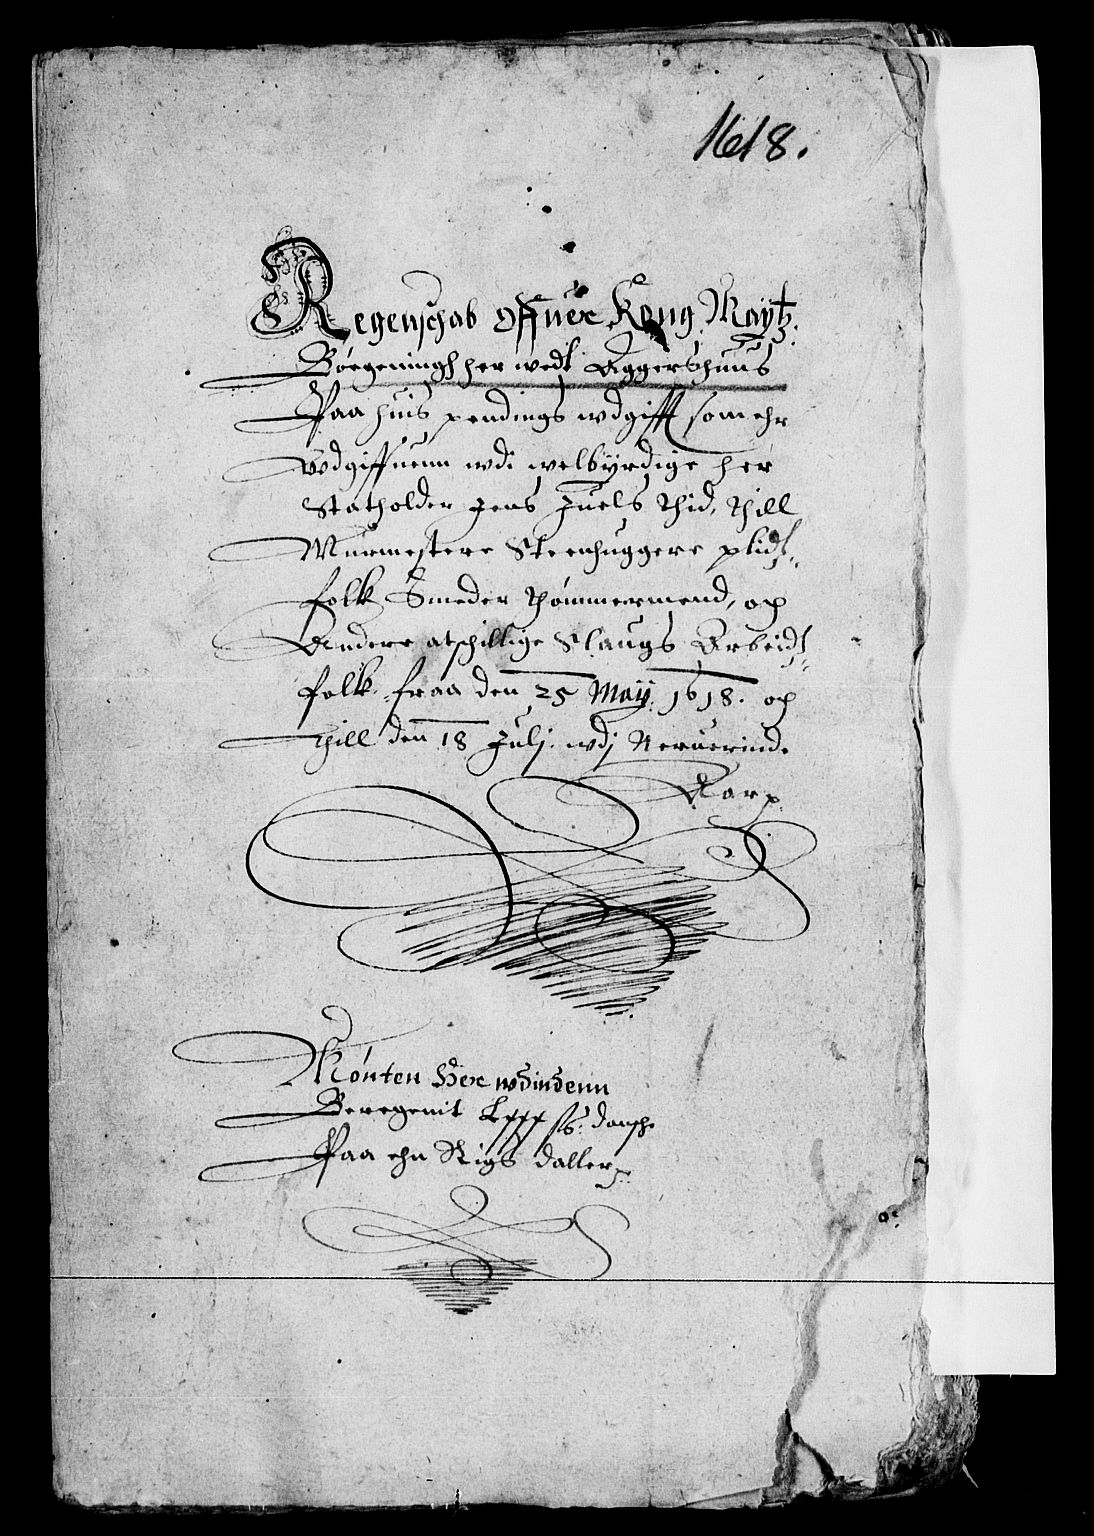 1618.
Regenschab offuer Kong Maytz.
Bøegeningh her wedt Aggershuus
Paa huis pendings wdgifft som ehr
Wdgiffuenn wdi welbyrdige her
Statholder Jens Juels thid, thill
Murmestere Steenhuggere plidt-
folk Smeder thømmermend, och
Andere atschillige Slaugs Arbeidt-
folk. fraa den 25 May 1618. och
thill den 18 Julj. wdj Neruerinde
Aar
Mønten her wdindenn
Beregenit Lxxx ss. dansche
Paa ehn Rigs daller